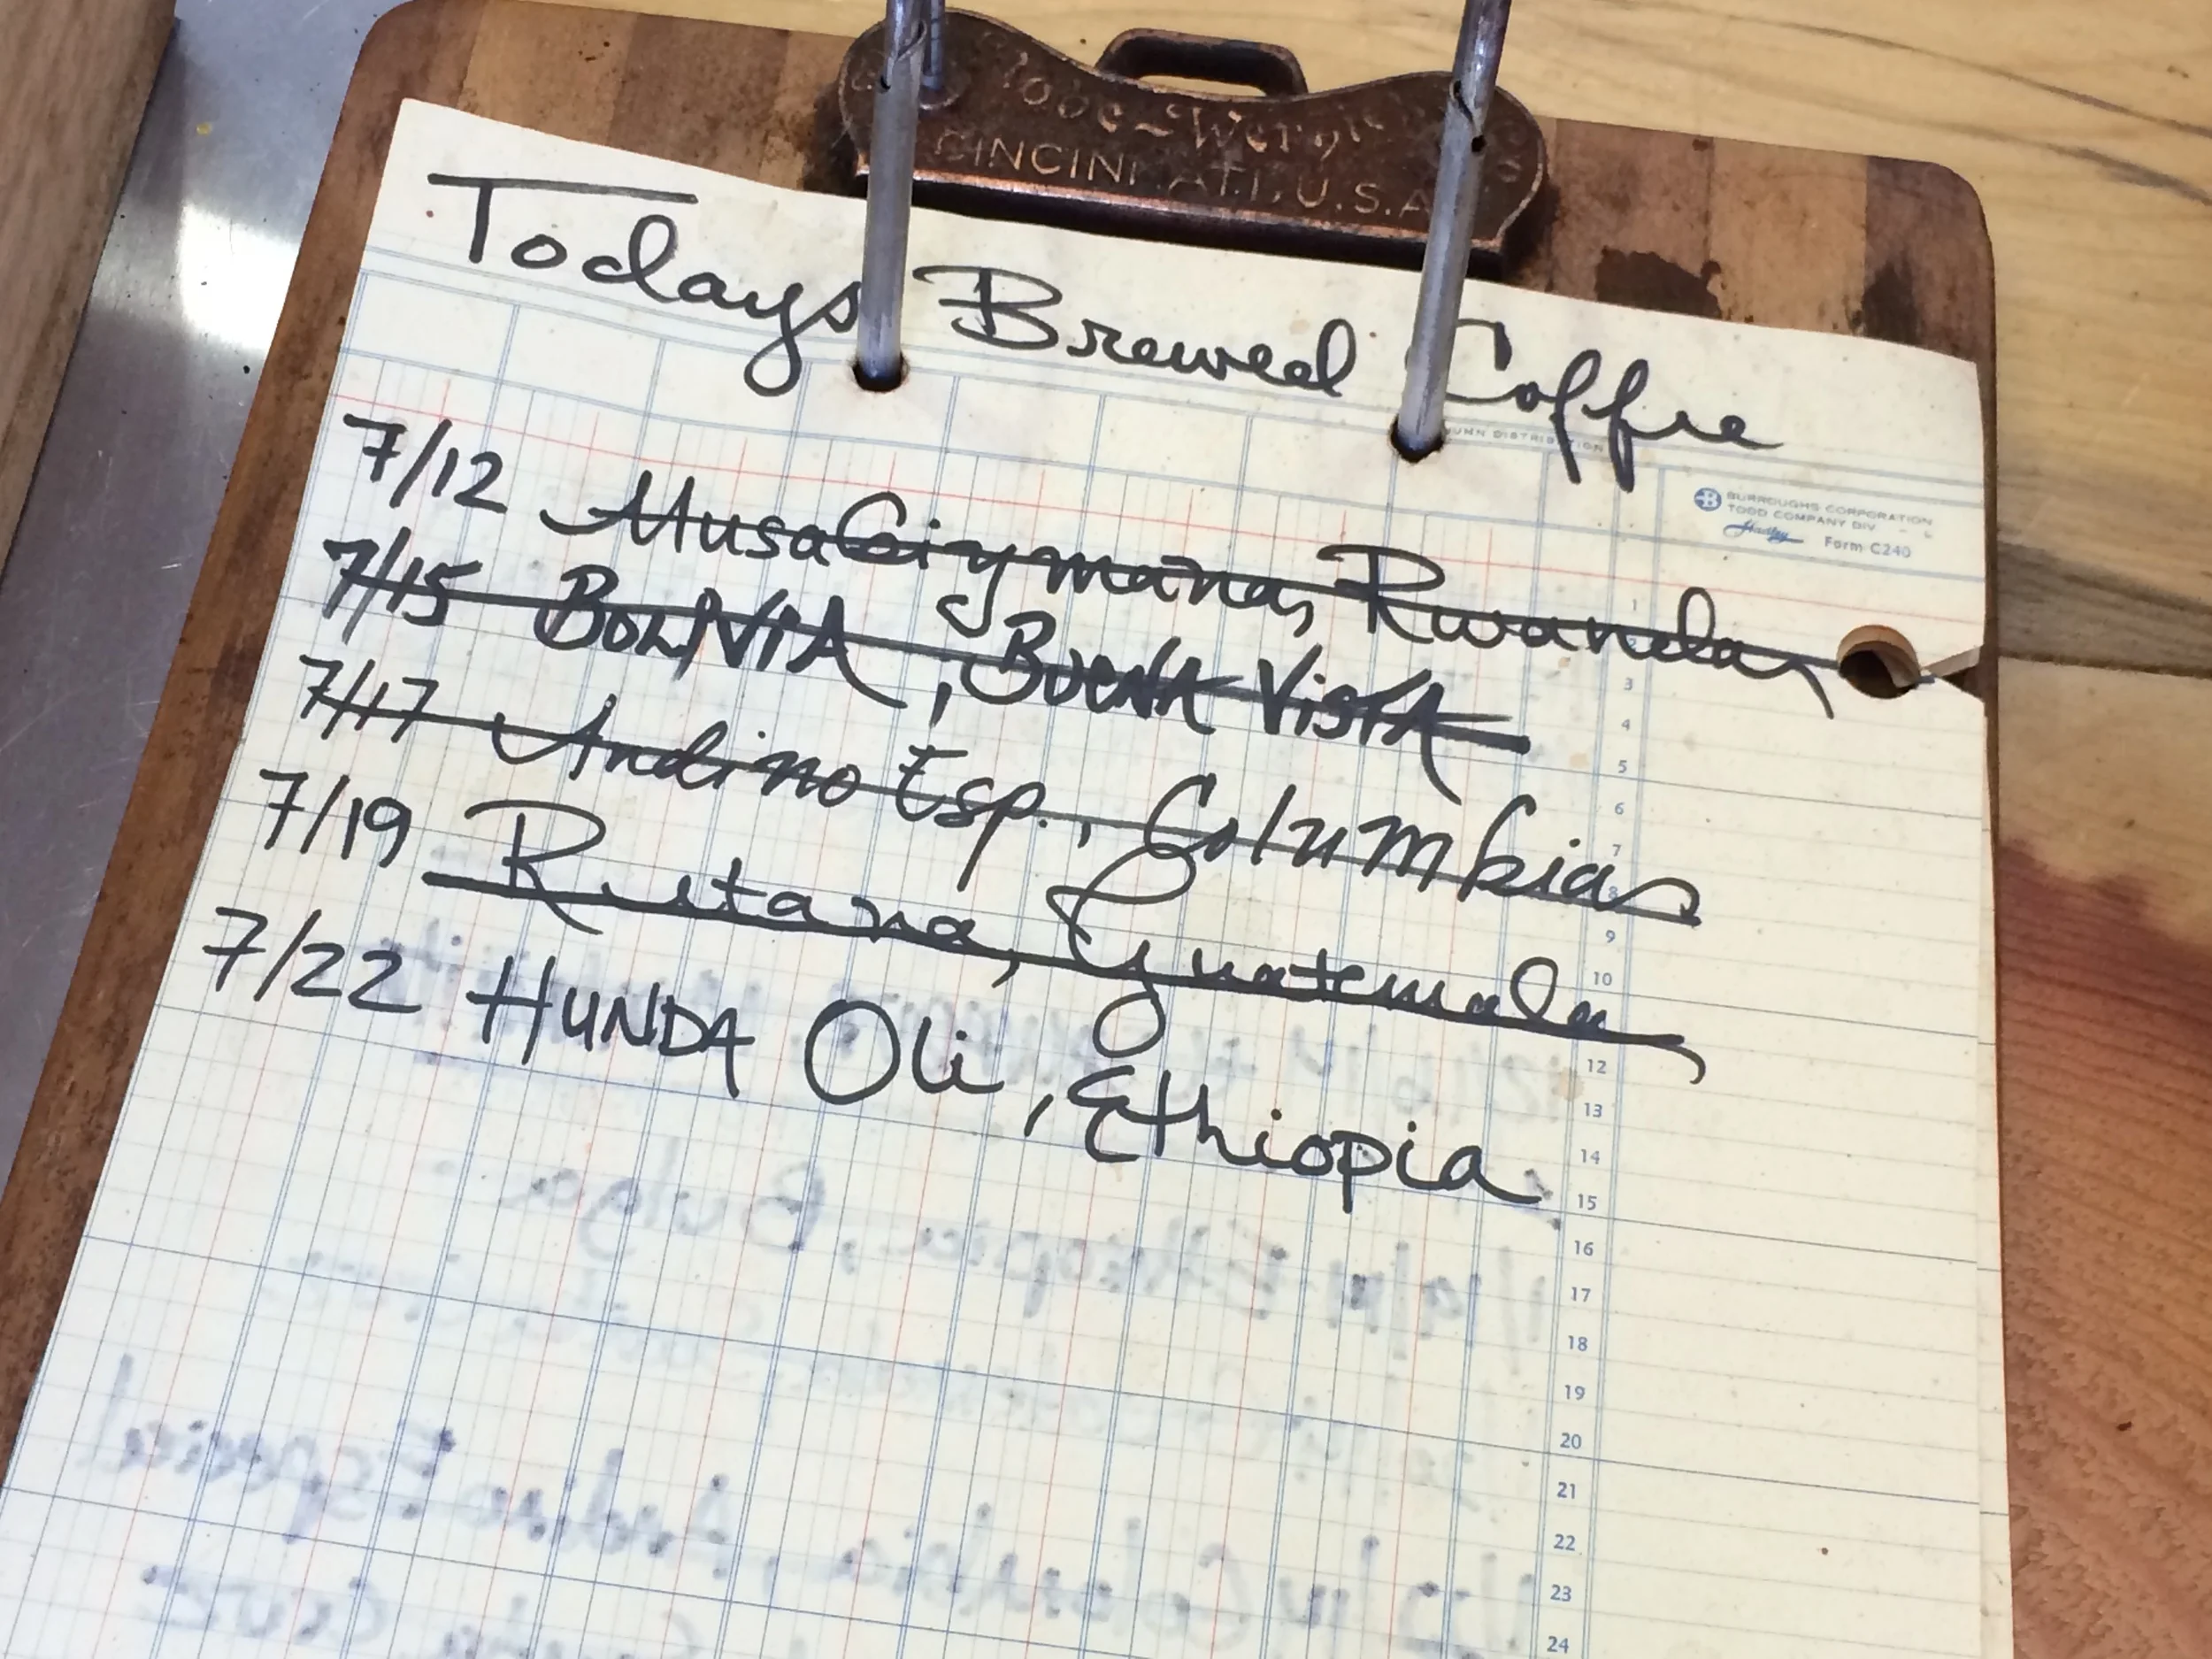 CINCINNATI, U.S.A
Todays Brewed Coffee
BURROUGHS CORPORATION
TODD COMPANY DIV
Form C240
7/12 Musabiymana, Rwanda
7/15 BOLIVIA, BUENA VISTA
7/17 Andino Esp., Columbia
7/19 Rutana, Guatemala
7/22 HUNDA Oli, Ethiopia
1
3
4
5
6
7
8
9
10
12
13
14
15
16
17
18
19
20
21
22
23
24